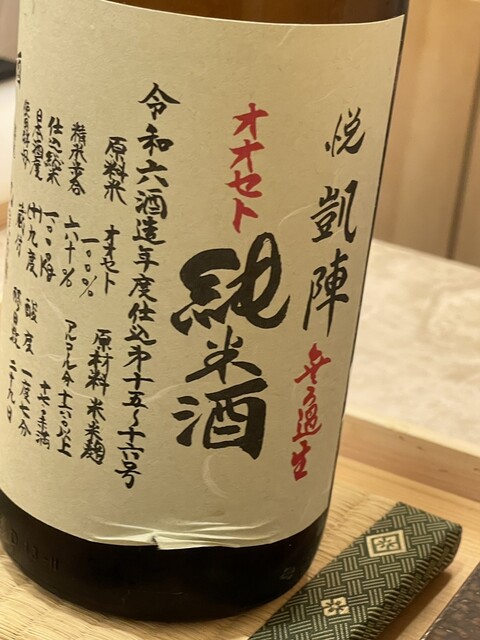 悦凱陣
無ろ過生
オオセト
純米酒
令和六酒造年度仕込第十五～十六号
原料米 オオセト 一〇〇％
原材料 米 米麹
精米歩合 六十％
アルコール分 十六度以上
十七度未満
仕込総米
日本酒度 (+)九度
酸度 一度七分
使用酵母
二十九日